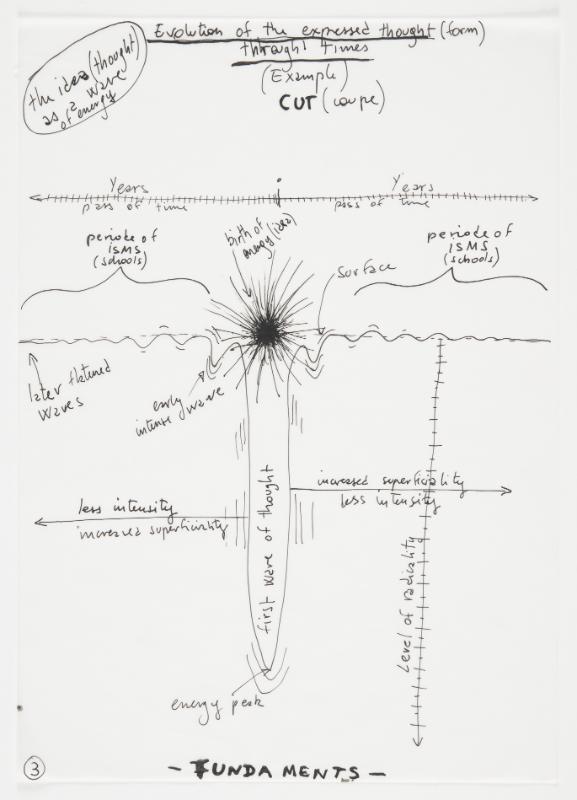 Evolution of the expressed thought (form)
throught times
(Example)
CUT (coupe)
the idea (thought)
as a wave
of energy
Years
pass of time
Years
pass of time
periode of
ISMS
(schools)
birth of
energy (idea)
surface
periode of
ISMS
(schools)
later flatened
waves
early
intense wave
first wave of thought
increased superficiality
less intensity
less intensity
increased superficiality
Level of radicality
energy peak
3
- FUNDAMENTS -